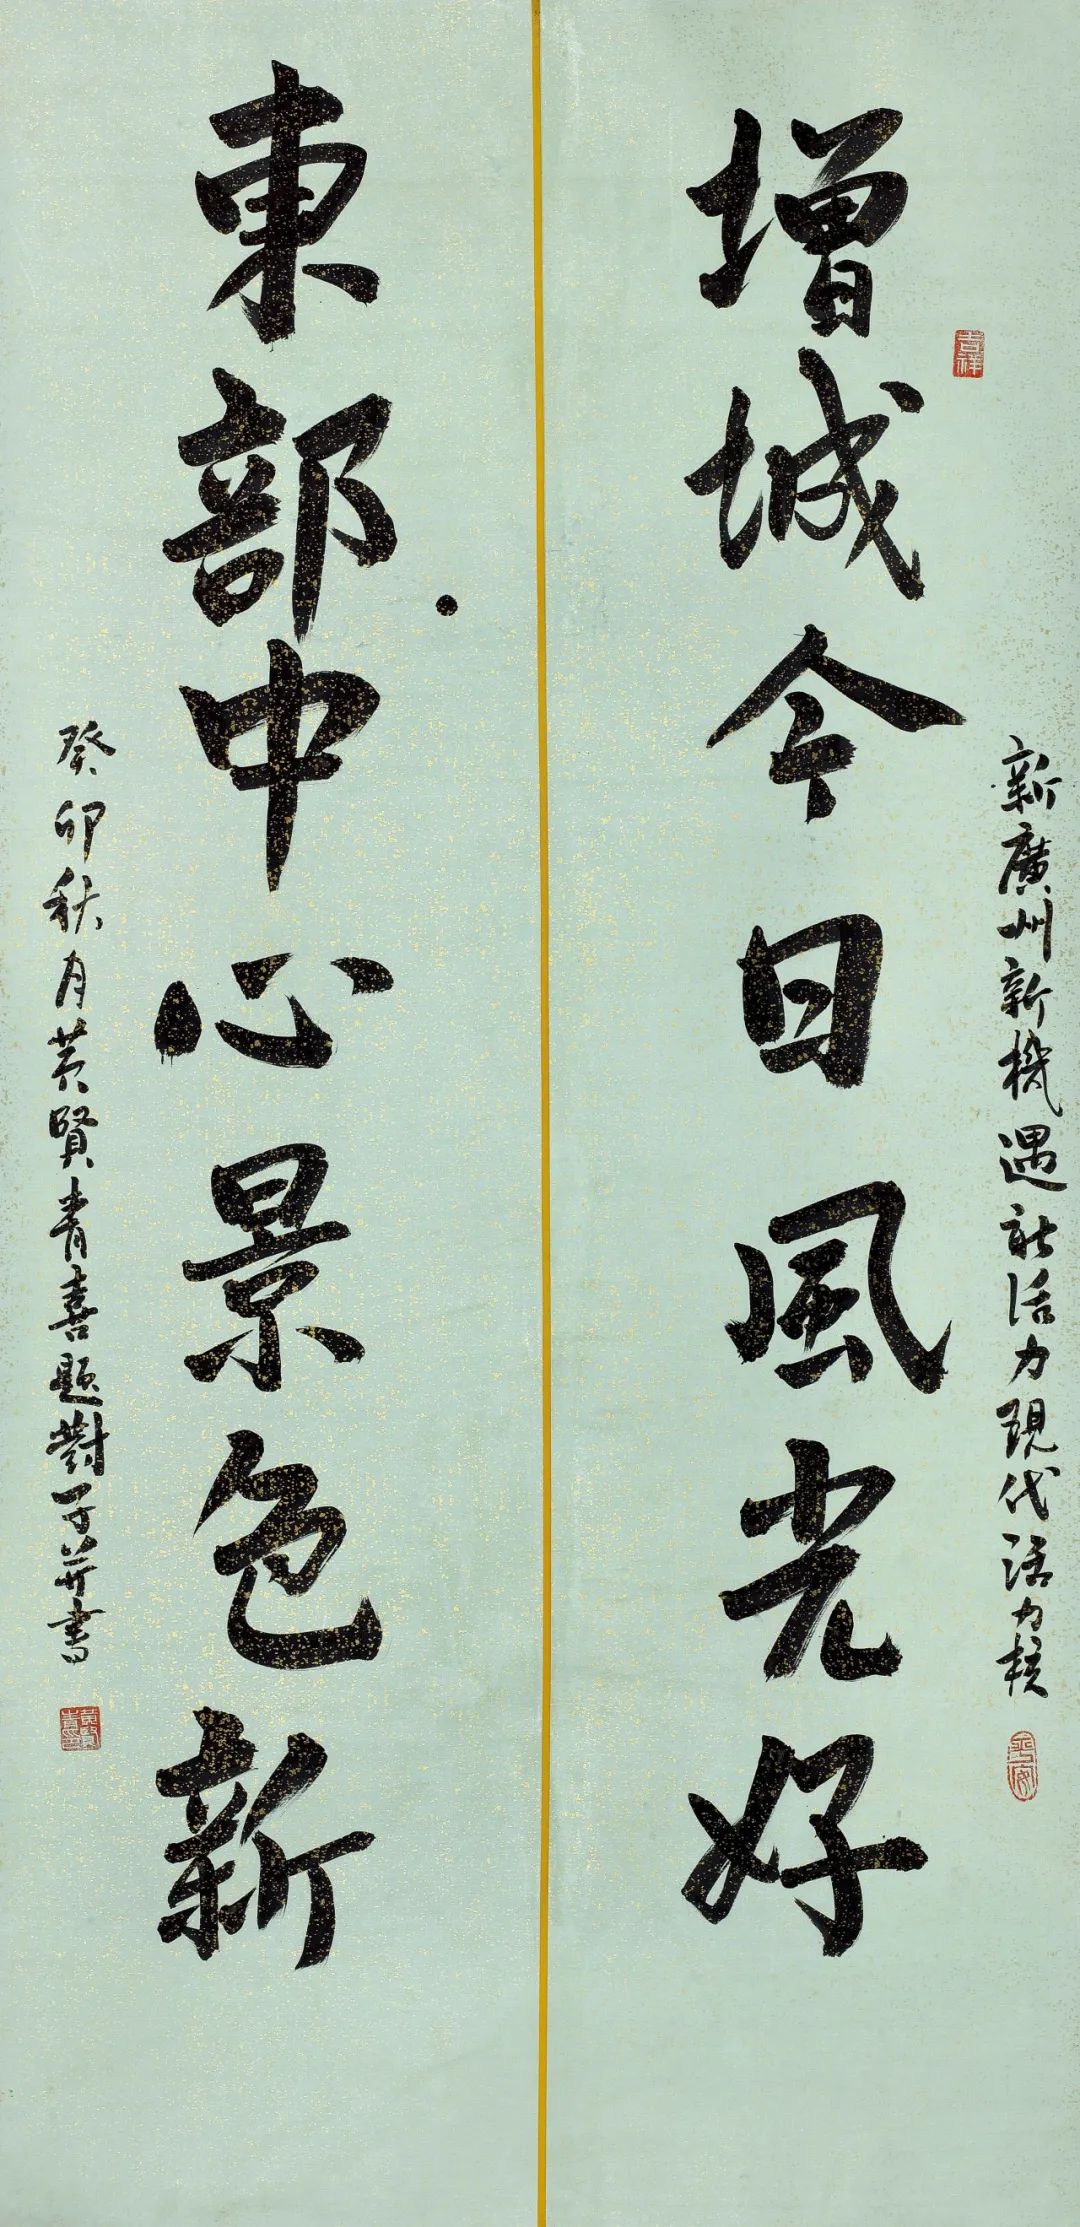 吉祥
增城今日風光好
新廣州新機遇新活力現代活力核
平安
東部中心景色新
癸卯秋月黄賢青喜題對子并書